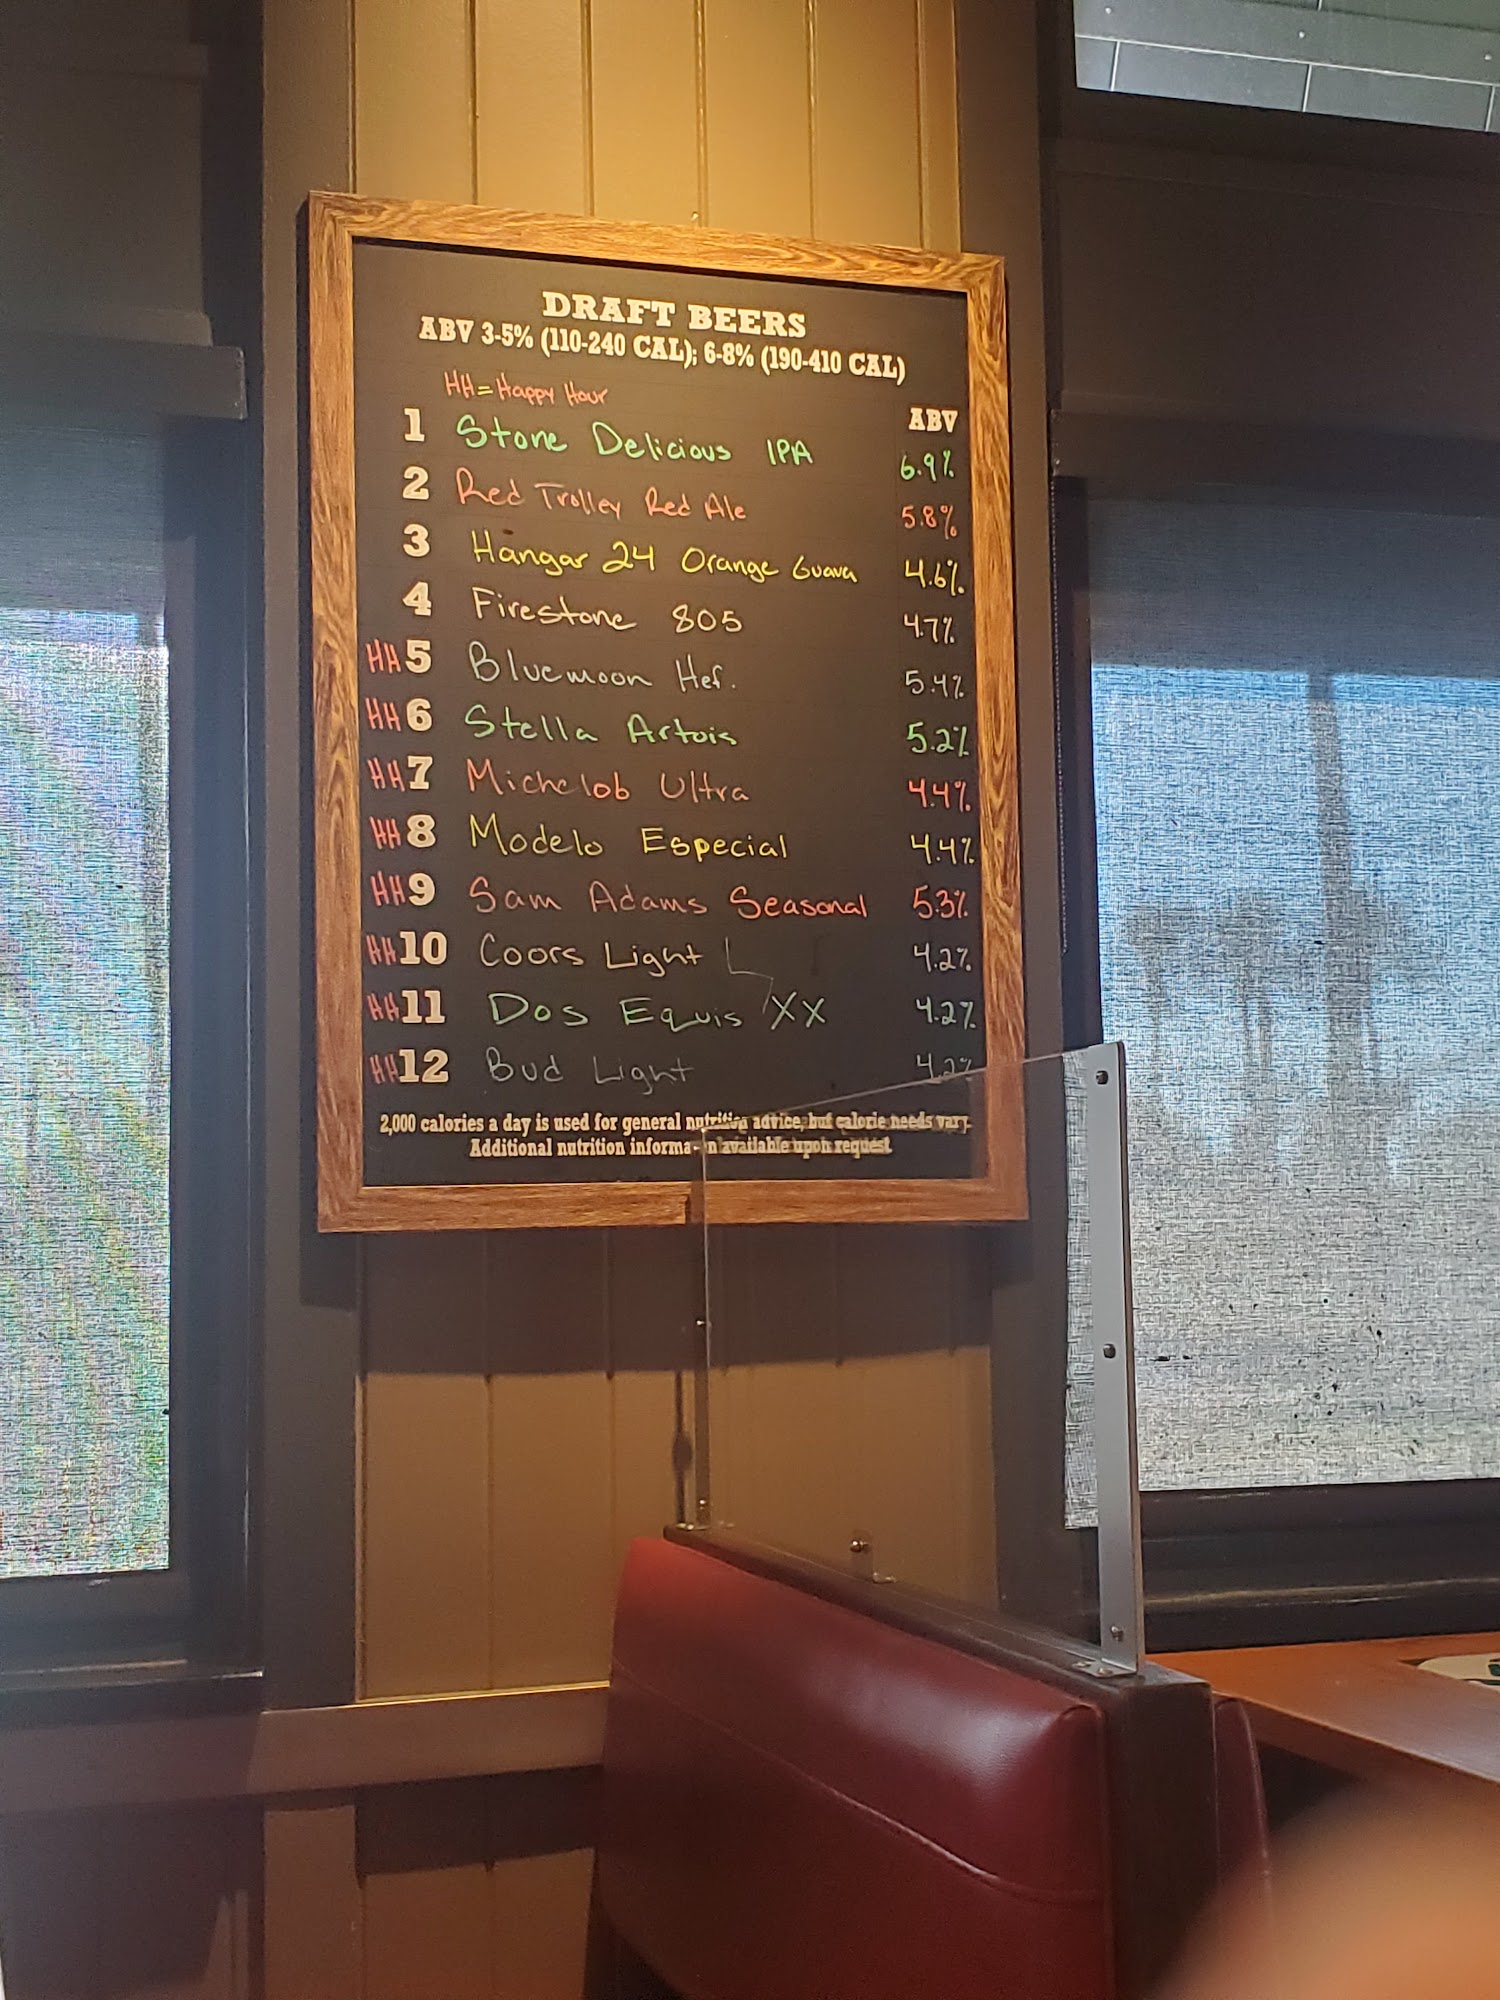 DRAFT BEERS
ABV 3-5% (110-240 CAL); 6-8% (190-410 CAL)
HH = Happy Hour
ABV
1 Stone Delicious IPA 6.9%
2 Red Trolley Red Ale 5.8%
3 Hangar 24 Orange Guava 4.6%
4 Firestone 805 4.7%
HH 5 Bluemoon Hef. 5.4%
HH 6 Stella Artois 5.2%
HH 7 Michelob Ultra 4.4%
HH 8 Modelo Especial 4.4%
HH 9 Sam Adams Seasonal 5.3%
HH 10 Coors Light 4.2%
HH 11 Dos Equis XX 4.2%
HH 12 Bud Light 4.2%
2,000 calories a day is used for general nutrition advice, but calorie needs vary.
Additional nutrition information available upon request